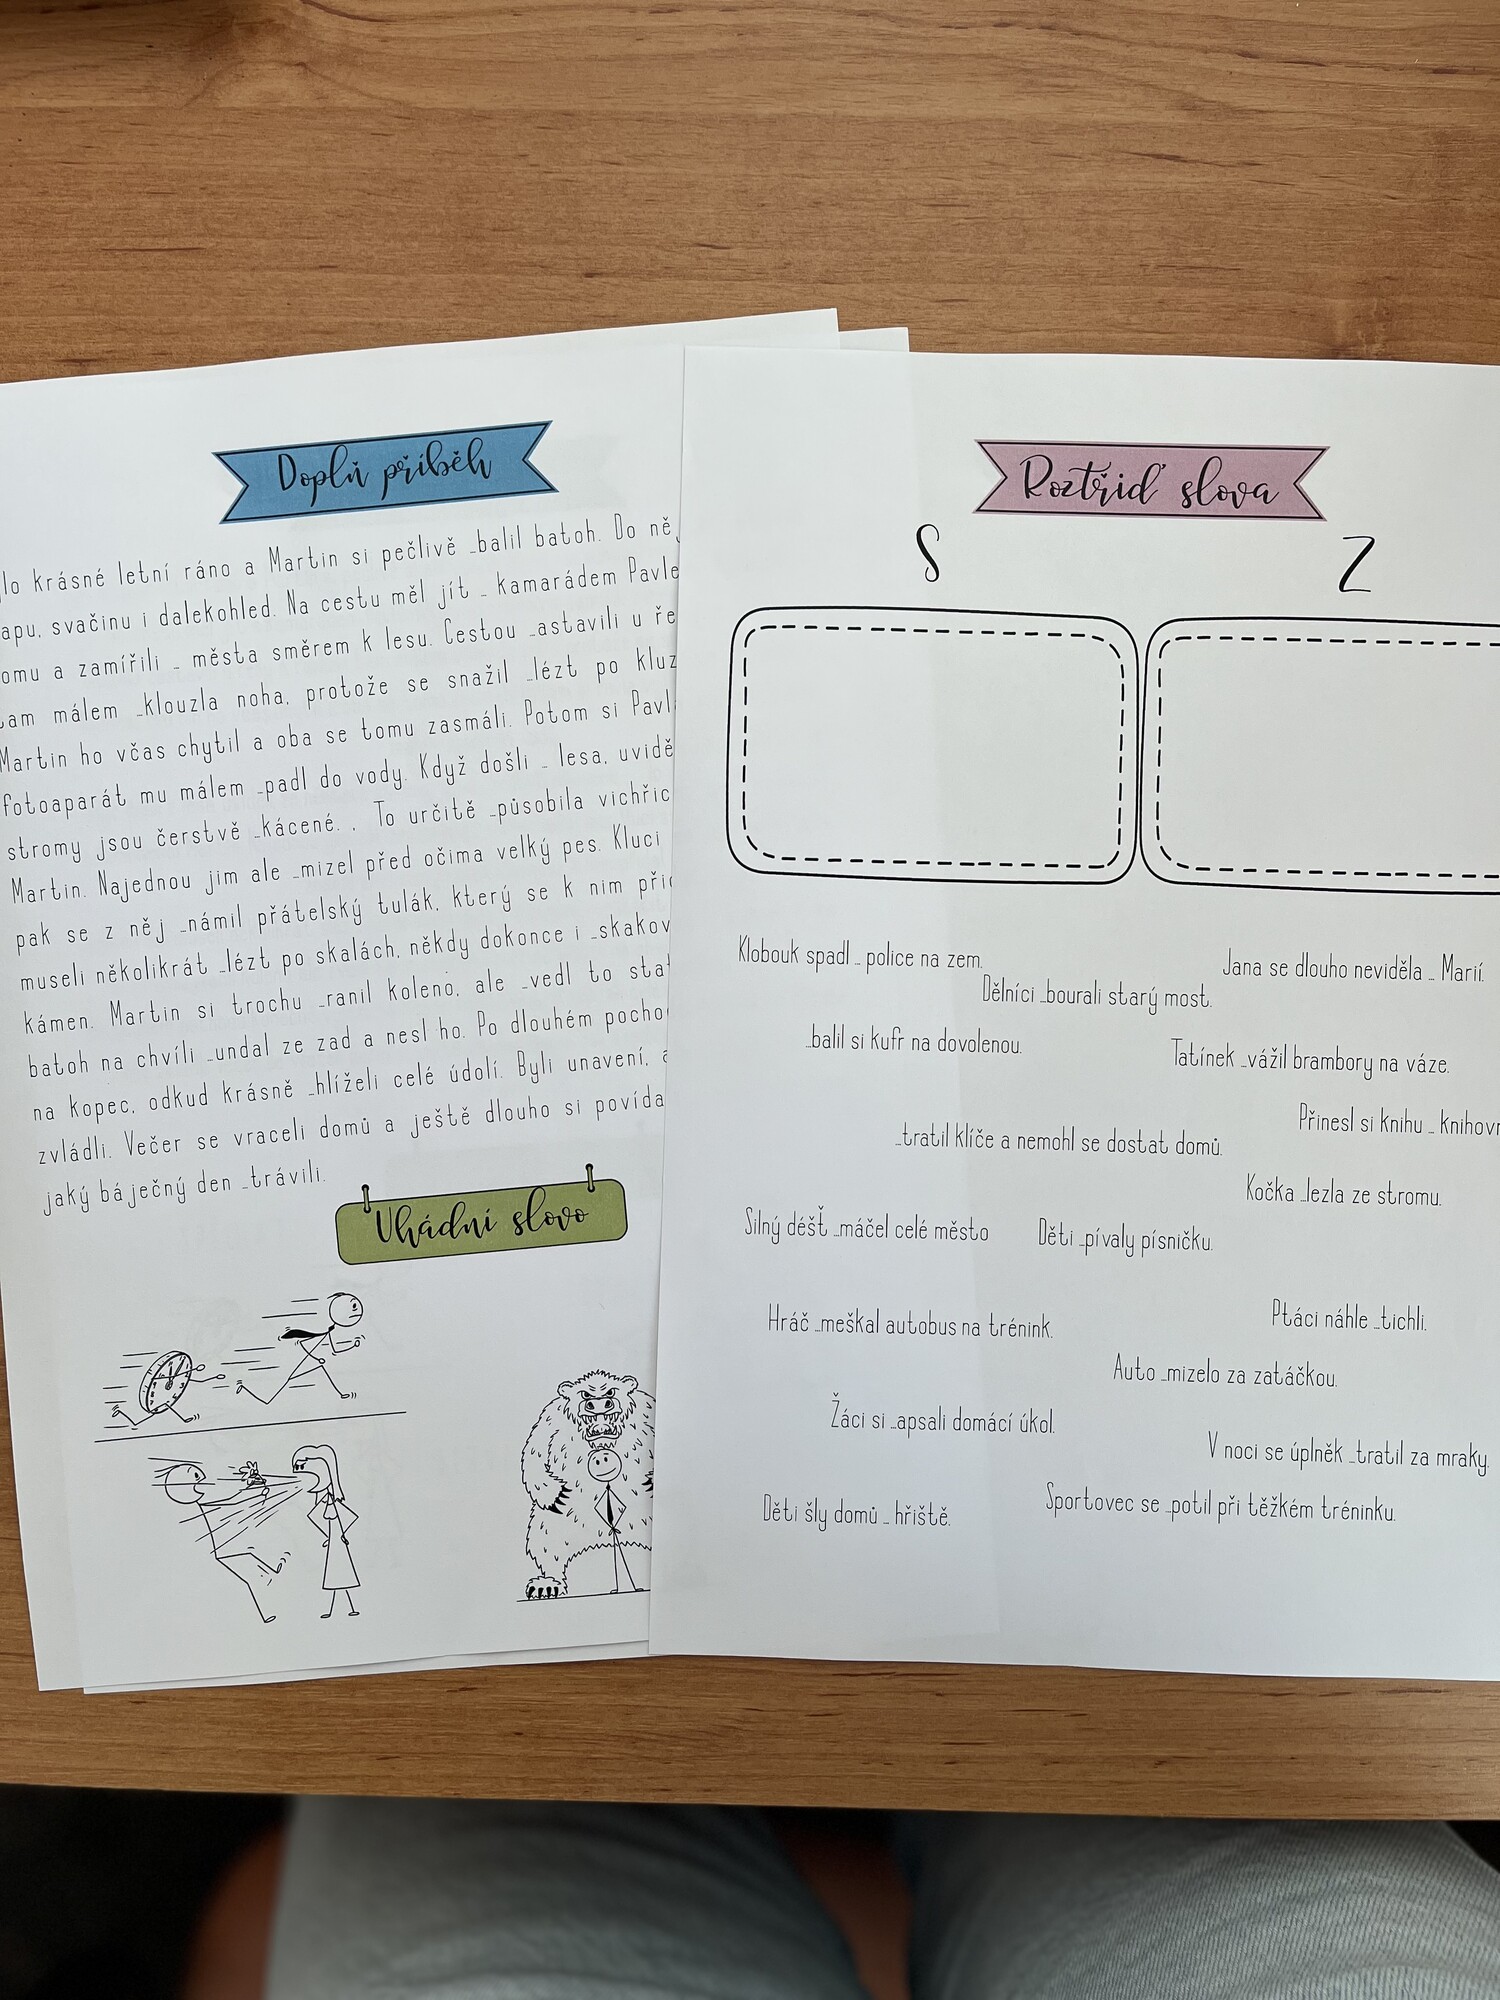 Doplň příběh
krásné letní ráno a Martin si pečlivě _balil batoh. Do
svačinu i dalekohled. Na cestu měl jít _ kamarádem
a zamířili _ města směrem k lesu. Cestou _astavili u
málem _klouzla noha, protože se snažil _lézt po
Martin ho včas chytil a oba se tomu zasmáli. Potom si
fotoaparát mu málem _padl do vody. Když došli _ lesa,
stromy jsou čerstvě _kácené. . To určitě _působila
Martin. Najednou jim ale _mizel před očima velký pes. Kluci
pak se z něj _námil přátelský tulák, který se k nim
museli několikrát _lézt po skalách, někdy dokonce i
kámen. Martin si trochu _ranil koleno, ale _vedl to
batoh na chvíli _undal ze zad a nesl ho. Po dlouhém
na kopec, odkud krásně _hlíželi celé údolí. Byli unavení,
zvládli. Večer se vraceli domů a ještě dlouho si
jaký báječný den _trávili.
Uhádni slovo
Roztřiď slova
S Z
Klobouk spadl _ police na zem.
Jana se dlouho neviděla _ Marií.
Dělníci _bourali starý most.
_balil si kufr na dovolenou.
Tatínek _vážil brambory na váze.
Přinesl si knihu _
_tratil klíče a nemohl se dostat domů.
Kočka _lezla ze stromu.
Silný déšť _máčel celé město
Děti _pívaly písničku.
Hráč _meškal autobus na trénink.
Ptáci náhle _tichli.
Auto _mizelo za zatáčkou.
Žáci si _apsali domácí úkol.
V noci se úplněk _tratil za mraky.
Děti šly domů _ hřiště.
Sportovec se _potil při těžkém tréninku.